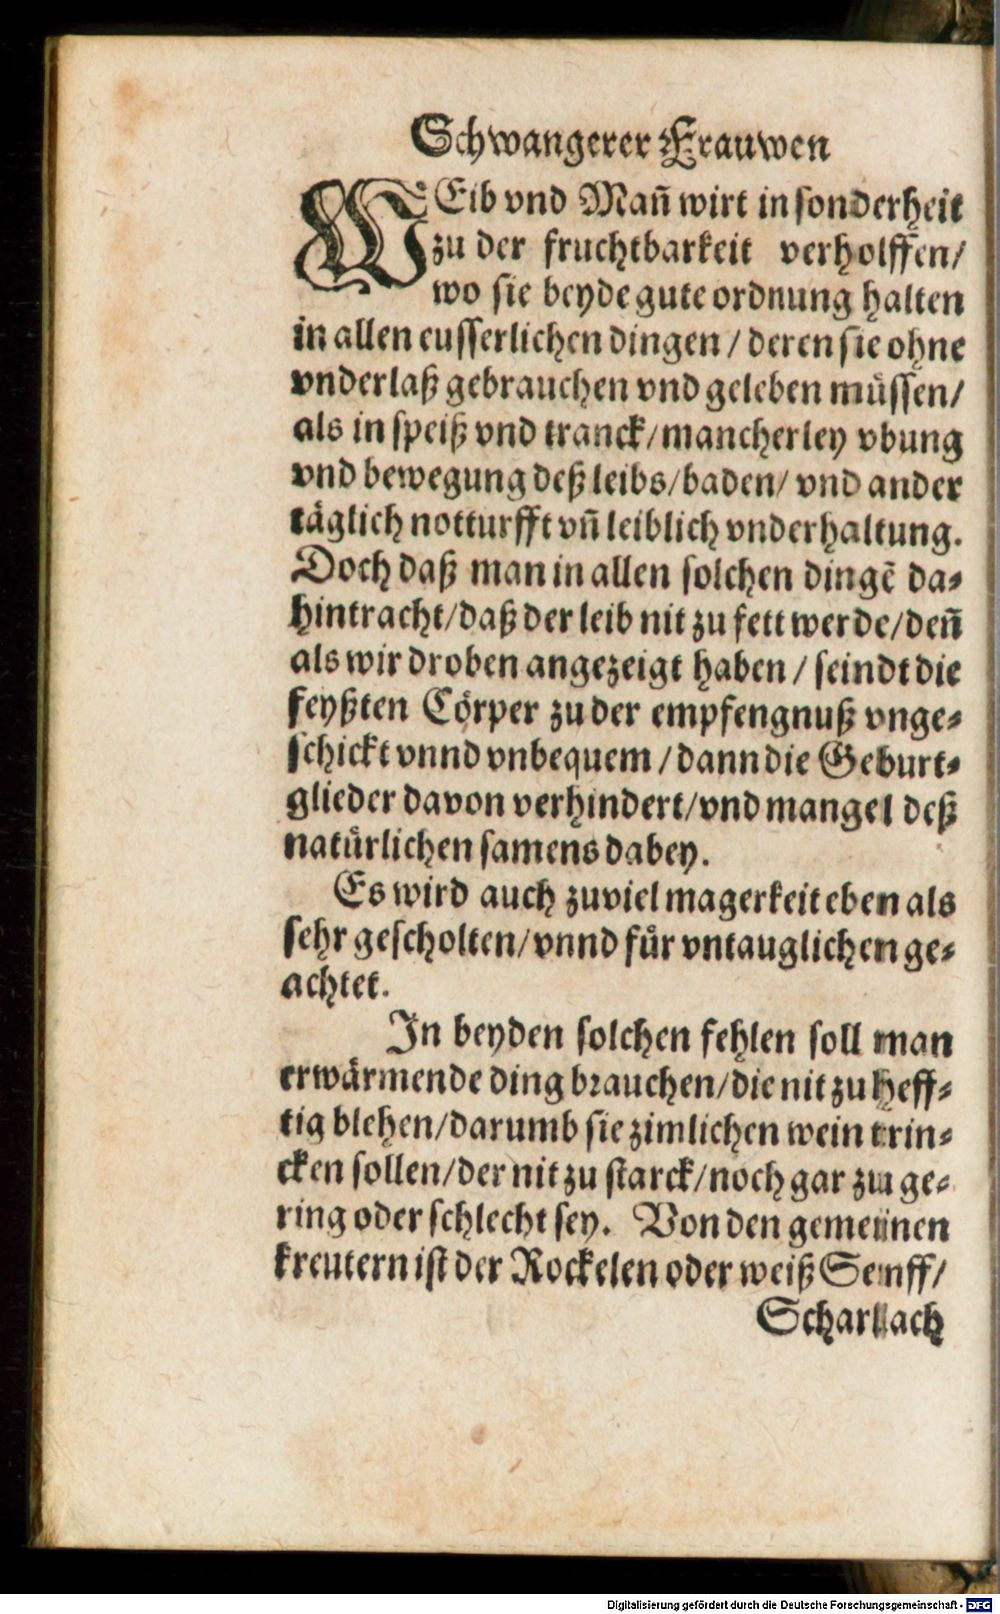 Schwangerer Frauwen
WEib vnd Mañ wirt in sonderheit
zu der fruchtbarkeit verholffen/
wo sie beyde gute ordnung halten
in allen eusserlichen dingen / deren sie ohne
vnderlaß gebrauchen vnd geleben müssen/
als in speiß vnd tranck/mancherley vbung
vnd bewegung deß leibs/baden/ vnd ander
täglich notturfft vñ leiblich vnderhaltung.
Doch daß man in allen solchen dingẽ da-
hintracht/daß der leib nit zu fett werde/deñ
als wir droben angezeigt haben / seindt die
feyßten Cörper zu der empfengnuß vnge-
schickt vnnd vnbequem / dann die Geburt-
glieder davon verhindert/vnd mangel deß
natürlichen samens dabey.
Es wird auch zuviel magerkeit eben als
sehr gescholten/vnnd für vntauglichen ge-
achtet.
In beyden solchen fehlen soll man
erwärmende ding brauchen/die nit zu heff-
tig blehen/darumb sie zimlichen wein trin-
cken sollen/der nit zu starck/noch gar zu ge-
ring oder schlecht sey. Von den gemeinen
kreutern ist der Rockelen oder weiß Semff/
Scharlach
Digitalisierung gefördert durch die Deutsche Forschungsgemeinschaft - DFG